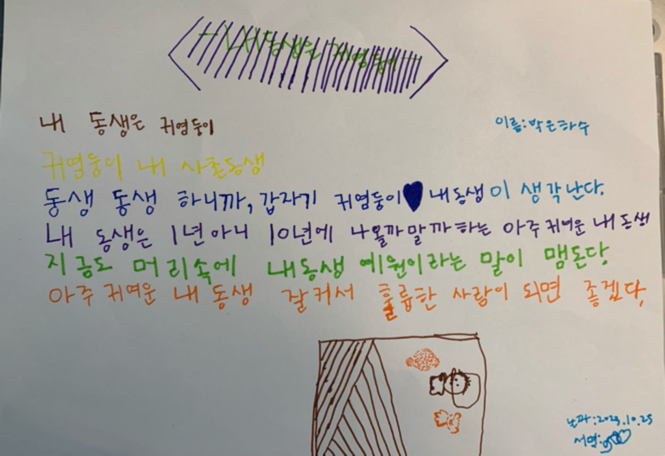 내 동생은 귀염둥이
내 동생은 귀염둥이
이름:박은하수
귀염둥이 내 사촌동생
동생 동생 하니까, 갑자기 귀염둥이♥내동생이 생각난다.
내 동생은 1년아니 10년에 나올까말까하는 아주귀여운 내동생
지금도 머리속에 내동생 예원이라는 말이 맴돈당
아주귀여운 내동생 잘커서 훌륭한 사람이 되면 좋겠다,
날짜:2023.10.25
서명: